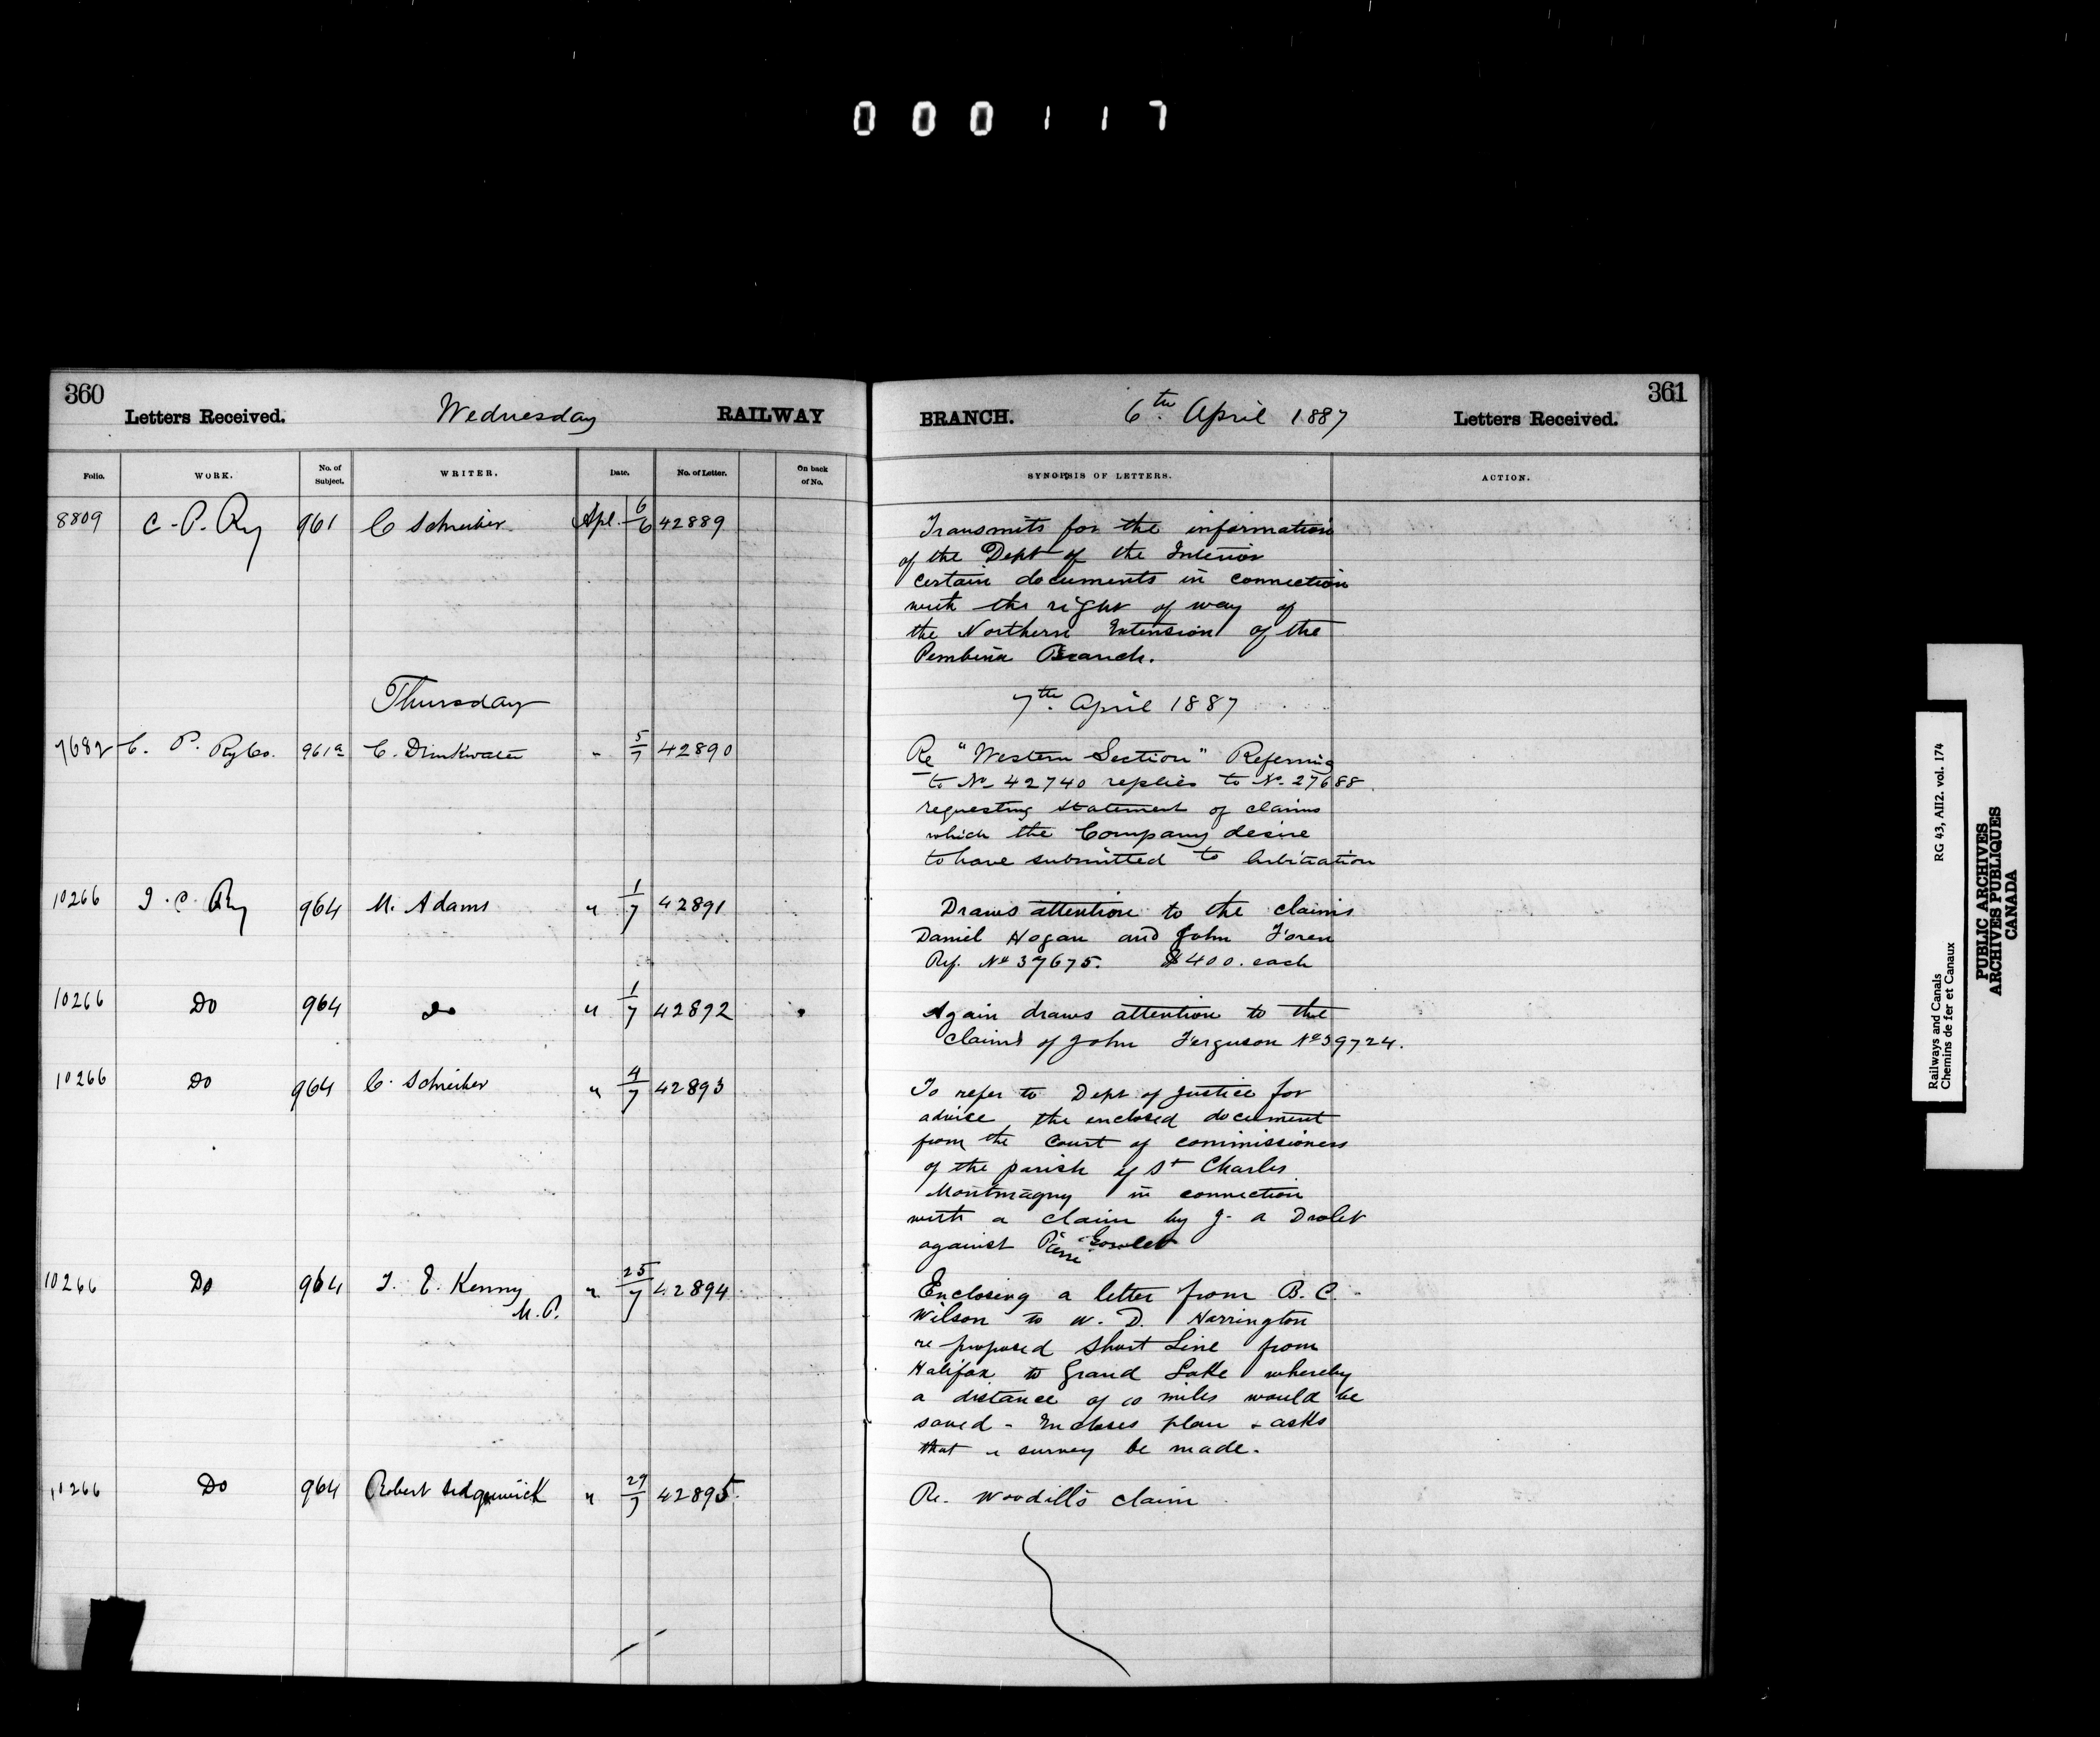 000117
360
Letters Received.
Wednesday
RAILWAY
Folio.
WORK.
No. of Subject.
WRITER.
Date.
No. of Letter.
On back of No.
8809 C. P. Ry 961 C Schreiber Apl. 6/6 42889
Thursday
7682 C. P. Ry Co. 961a C. Drinkwater " 5/7 42890
10266 I. C. Ry 964 M. Adams " 1/7 42891
10266 Do 964 Do " 1/7 42892
10266 Do 964 C. Schreiber " 4/7 42893
10266 Do 964 T. E. Kenny " 25/7 42894
M.P.
10266 Do 964 Robert Sedgewick " 29/7 42895
BRANCH.
6th. April 1887
Letters Received.
361
SYNOPSIS OF LETTERS.
ACTION.
Transmits for the information
of the Dept of the Interior
certain documents in connection
with the right of way of
the Northern Extension of the
Pembina Branch.
7th. April 1887
Re "Western Section" Referring
to No 42740 replies to No. 27688.
requesting statement of claims
which the Company desire
to have submitted to Arbitration
Draws attention to the claims
Daniel Hogan and John Foren
Ref. No 37675. $400. each
Again draws attention to the
claims of John Ferguson No 39724.
To refer to Dept of Justice for
advice, the enclosed document
from the Court of commissioners
of the parish of St Charles
Montmagny in connection
with a claim by J. A Drolet
against Pierre
Enclosing a letter from B. C.
Wilson to W. D. Harrington
re proposed Short Line from
Halifax to Grand Lake whereby
a distance of 10 miles would be
saved - Encloses plan & asks
that a survey be made.
Re. Woodill's claim
Railways and Canals RG 43, AII2. vol. 174
Chemins de fer et Canaux
PUBLIC ARCHIVES
ARCHIVES PUBLIQUES
CANADA